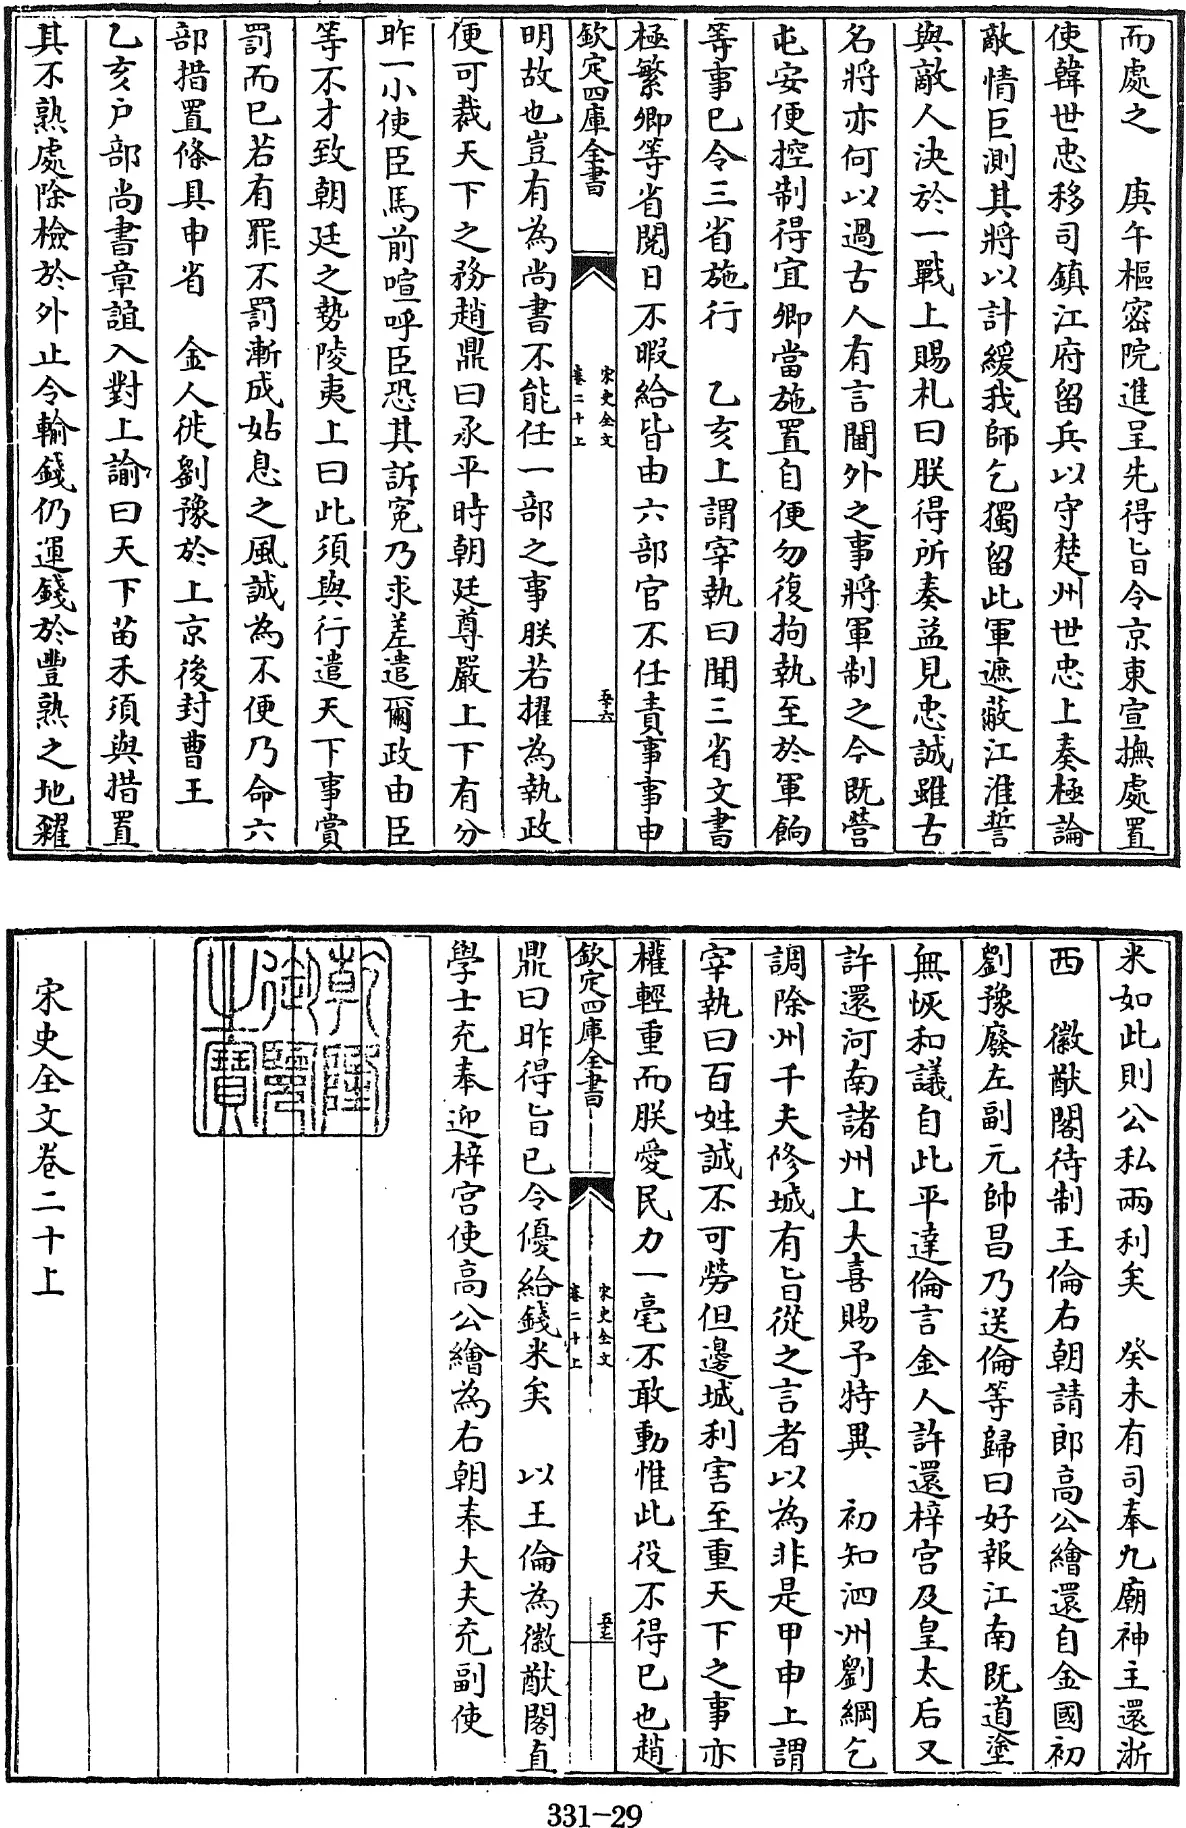 而處之　庚午樞密院進呈先得旨令京東宣撫處置
使韓世忠移司鎮江府留兵以守楚州世忠上奏極論
敵情叵測其將以計緩我師乞獨留此軍遮蔽江淮誓
與敵人決於一戰上賜札曰朕得所奏益見忠誠雖古
名將亦何以過古人有言閫外之事將軍制之今既營
屯安便控制得宜卿當施置自便勿復拘執至於軍餉
等事已令三省施行　乙亥上謂宰執曰聞三省文書
極繁卿等省閱日不暇給皆由六部官不任責事事申
欽定四庫全書
宋史全文
卷二十上
五十六
明故也豈有為尚書不能任一部之事朕若擢為執政
便可裁天下之務趙鼎曰承平時朝廷尊嚴上下有分
昨一小使臣馬前喧呼臣恐其訴冤乃求差遣爾政由臣
等不才致朝廷之勢陵夷上曰此須與行遣天下事賞
罰而已若有罪不罰漸成姑息之風誠為不便乃命六
部措置條具申省　金人徙劉豫於上京後封曹王
乙亥户部尚書章誼入對上諭曰天下苗禾須與措置
其不熟處除檢放外止令輸錢仍運錢於豐熟之地糴
米如此則公私兩利矣　癸未有司奉九廟神主還浙
西　徽猷閣待制王倫右朝請郎高公繪還自金國初
劉豫廢左副元帥昌乃送倫等歸曰好報江南既道塗
無恢和議自此平達倫言金人許還梓宮及皇太后又
許還河南諸州上大喜賜予特異　初知泗州劉綱乞
調除州千夫修城有旨從之言者以為非是甲申上謂
宰執曰百姓誠不可勞但邊城利害至重天下之事亦
權輕重而朕愛民力一毫不敢動惟此役不得已也趙
欽定四庫全書
宋史全文
卷二十上
五十七
鼎曰昨得旨已令優給錢米矣　以王倫為徽猷閣直
學士充奉迎梓宮使高公繪為右朝奉大夫充副使
乾隆御覽之寶
宋史全文卷二十上
331-29